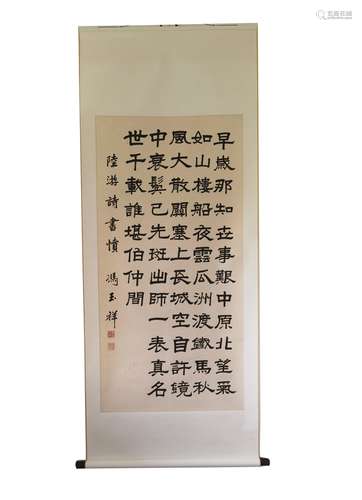 早歲那知世事艱中原北望氣
如山樓船夜雪瓜洲渡鐵馬秋
風大散關塞上長城空自許鏡
中衰鬢已先斑出師一表真名
世千載誰堪伯仲間
陸游詩書憤 馮玉祥